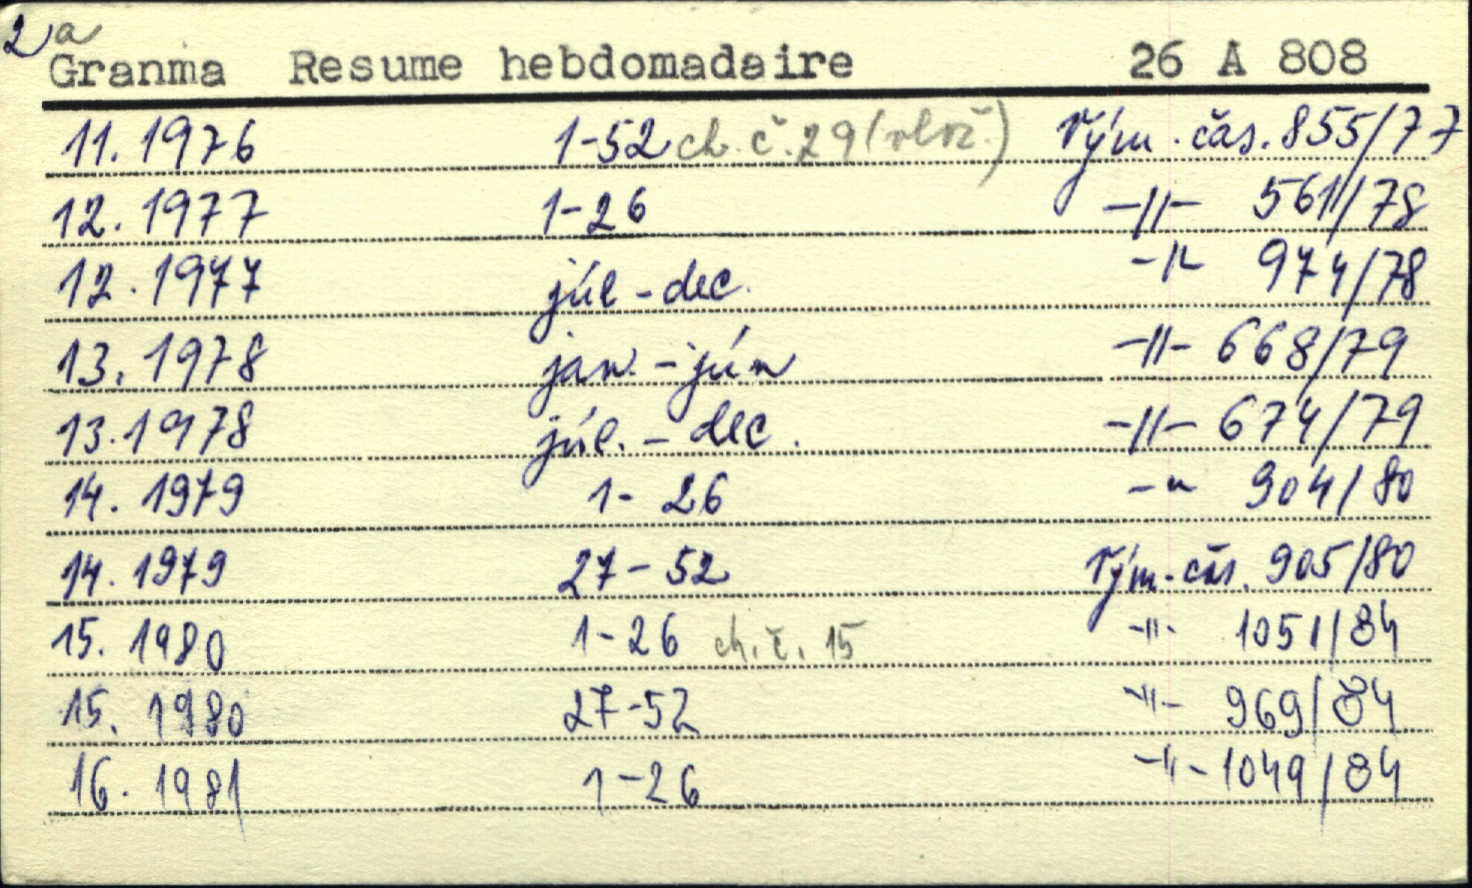 2a
Granma Resume hebdomadaire 26 A 808
11. 1976 1-52 ch. č. 29 (vlož.) Vým. čas. 855/77
12. 1977 1-26 -||- 561/78
12. 1977 júl - dec. -||- 974/78
13. 1978 jan. - jún -||- 668/79
13. 1978 júl. - dec. -||- 674/79
14. 1979 1-26 -"- 904/80
14. 1979 27-52 Vým. čas. 905/80
15. 1980 1-26 ch. č. 15 -||- 1051/84
15. 1980 27-52 -||- 969/84
16. 1981 1-26 -||- 1049/84